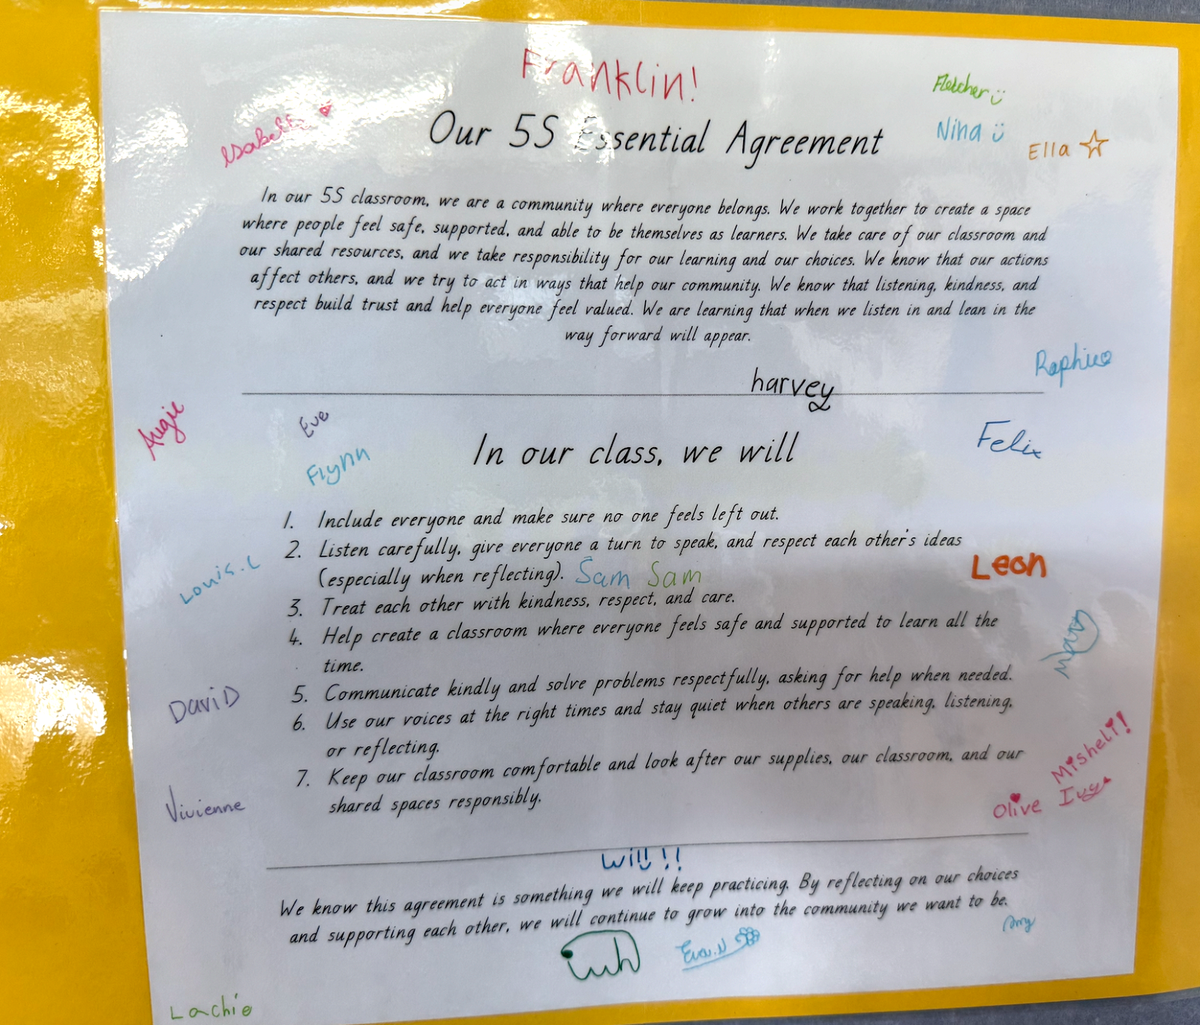 Franklin!
Fletcher
Isabelle
Nina
Ella
Our 5S Essential Agreement
In our 5S classroom, we are a community where everyone belongs. We work together to create a space
where people feel safe, supported, and able to be themselves as learners. We take care of our classroom and
our shared resources, and we take responsibility for our learning and our choices. We know that our actions
affect others, and we try to act in ways that help our community. We know that listening, kindness, and
respect build trust and help everyone feel valued. We are learning that when we listen in and lean in the
way forward will appear.
harvey
Augie
Eve
Flynn
Felix
In our class, we will
1. Include everyone and make sure no one feels left out.
2. Listen carefully, give everyone a turn to speak, and respect each other's ideas
(especially when reflecting). Sam Sam
Leon
Louis.L
3. Treat each other with kindness, respect, and care.
4. Help create a classroom where everyone feels safe and supported to learn all the
time.
5. Communicate kindly and solve problems respectfully, asking for help when needed.
DaviD
6. Use our voices at the right times and stay quiet when others are speaking, listening,
or reflecting.
7. Keep our classroom comfortable and look after our supplies, our classroom, and our
shared spaces responsibly.
Misheli!
Olive Ivy
Vivienne
Will!!
We know this agreement is something we will keep practicing. By reflecting on our choices
and supporting each other, we will continue to grow into the community we want to be.
Eva.N
Lachie